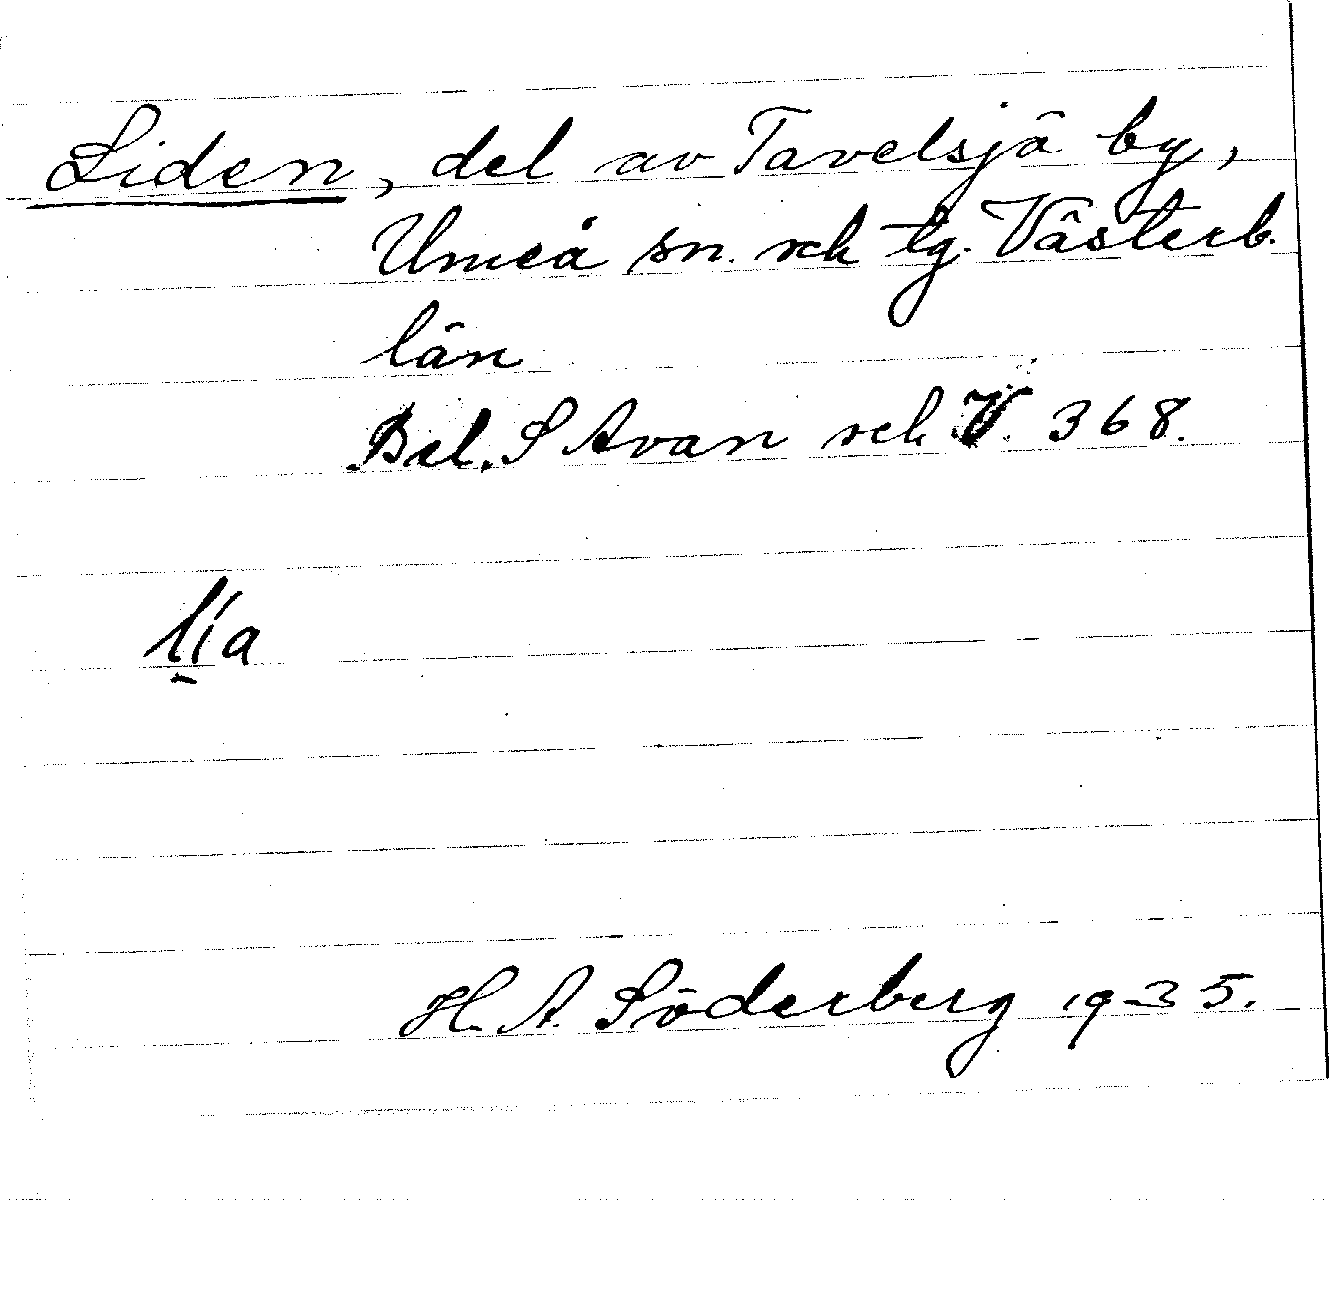 Liden, del av Tavelsjö by,
Umeå sn. och tg. Västerb.
län
Bel. S Avan och V. 368.
lia
H. A. Söderberg 1935.